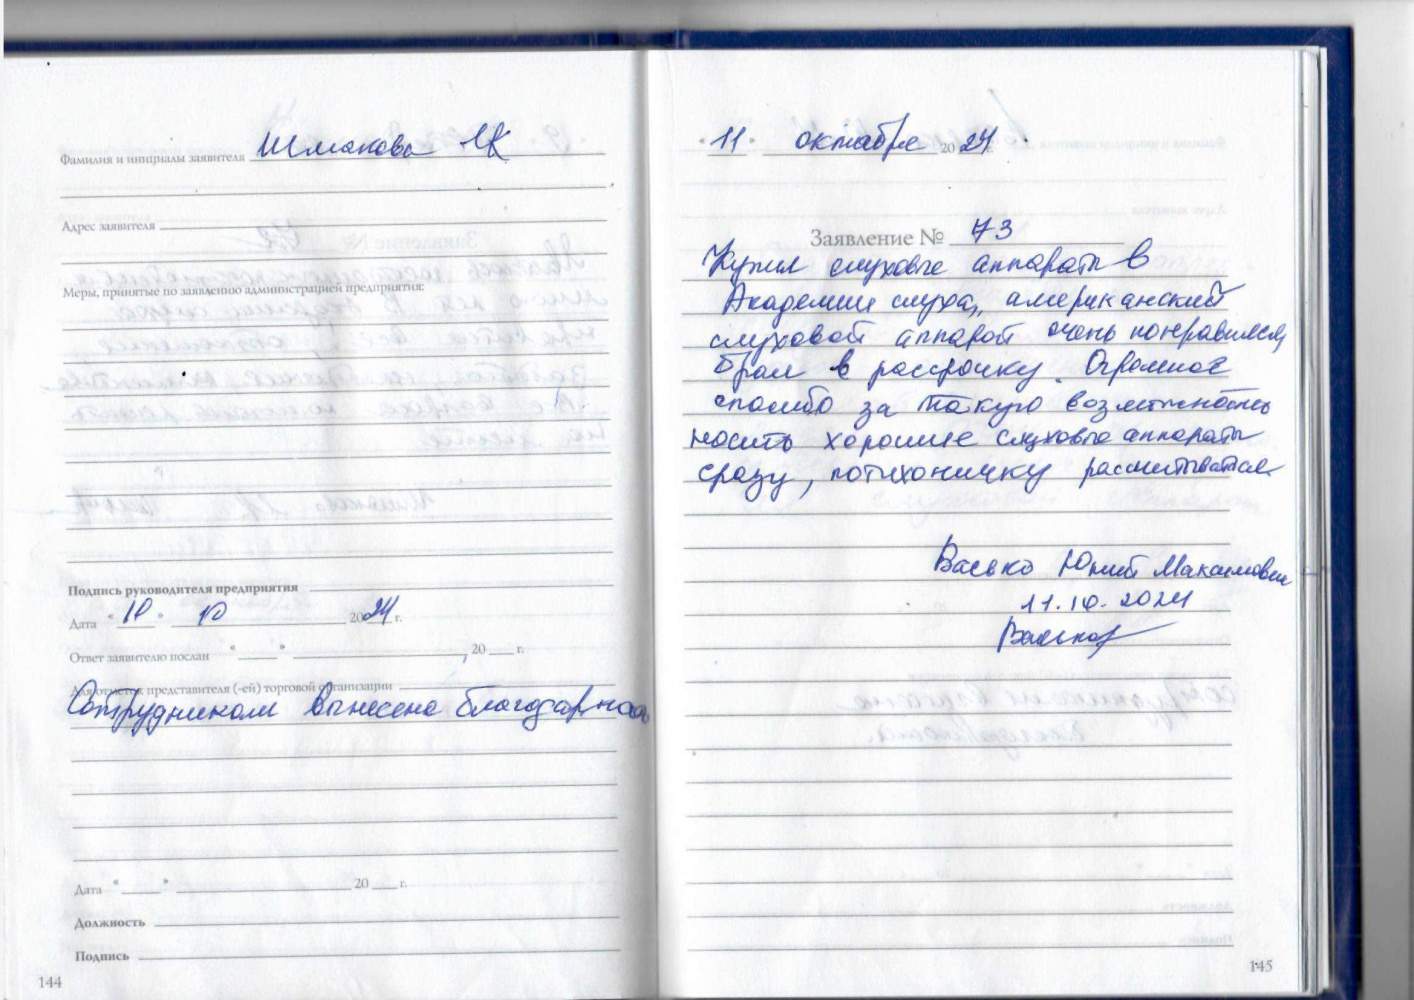 Фамилия и инициалы заявителя Шмакова
Адрес заявителя
Меры, принятые по заявлению администрацией предприятия:
Подпись руководителя предприятия
Дата " 10 " 10 2024 г.
Ответ заявителю послан " " , 20 г.
Для отметок представителя (-ей) торговой организации
Сотрудникам вынесена благодарность
Дата " " 20 г.
Должность
Подпись
144
" 11 " октября 20 24
Заявление № 73
Купил слуховые аппараты в
Академии слуха, американский
слуховой аппарат очень понравился,
брал в рассрочку. Огромное
спасибо за такую возможность
носить хорошие слуховые аппараты
сразу, потихоничку рассчитываться
Васько Юрий Максимович
11.10.2024
145